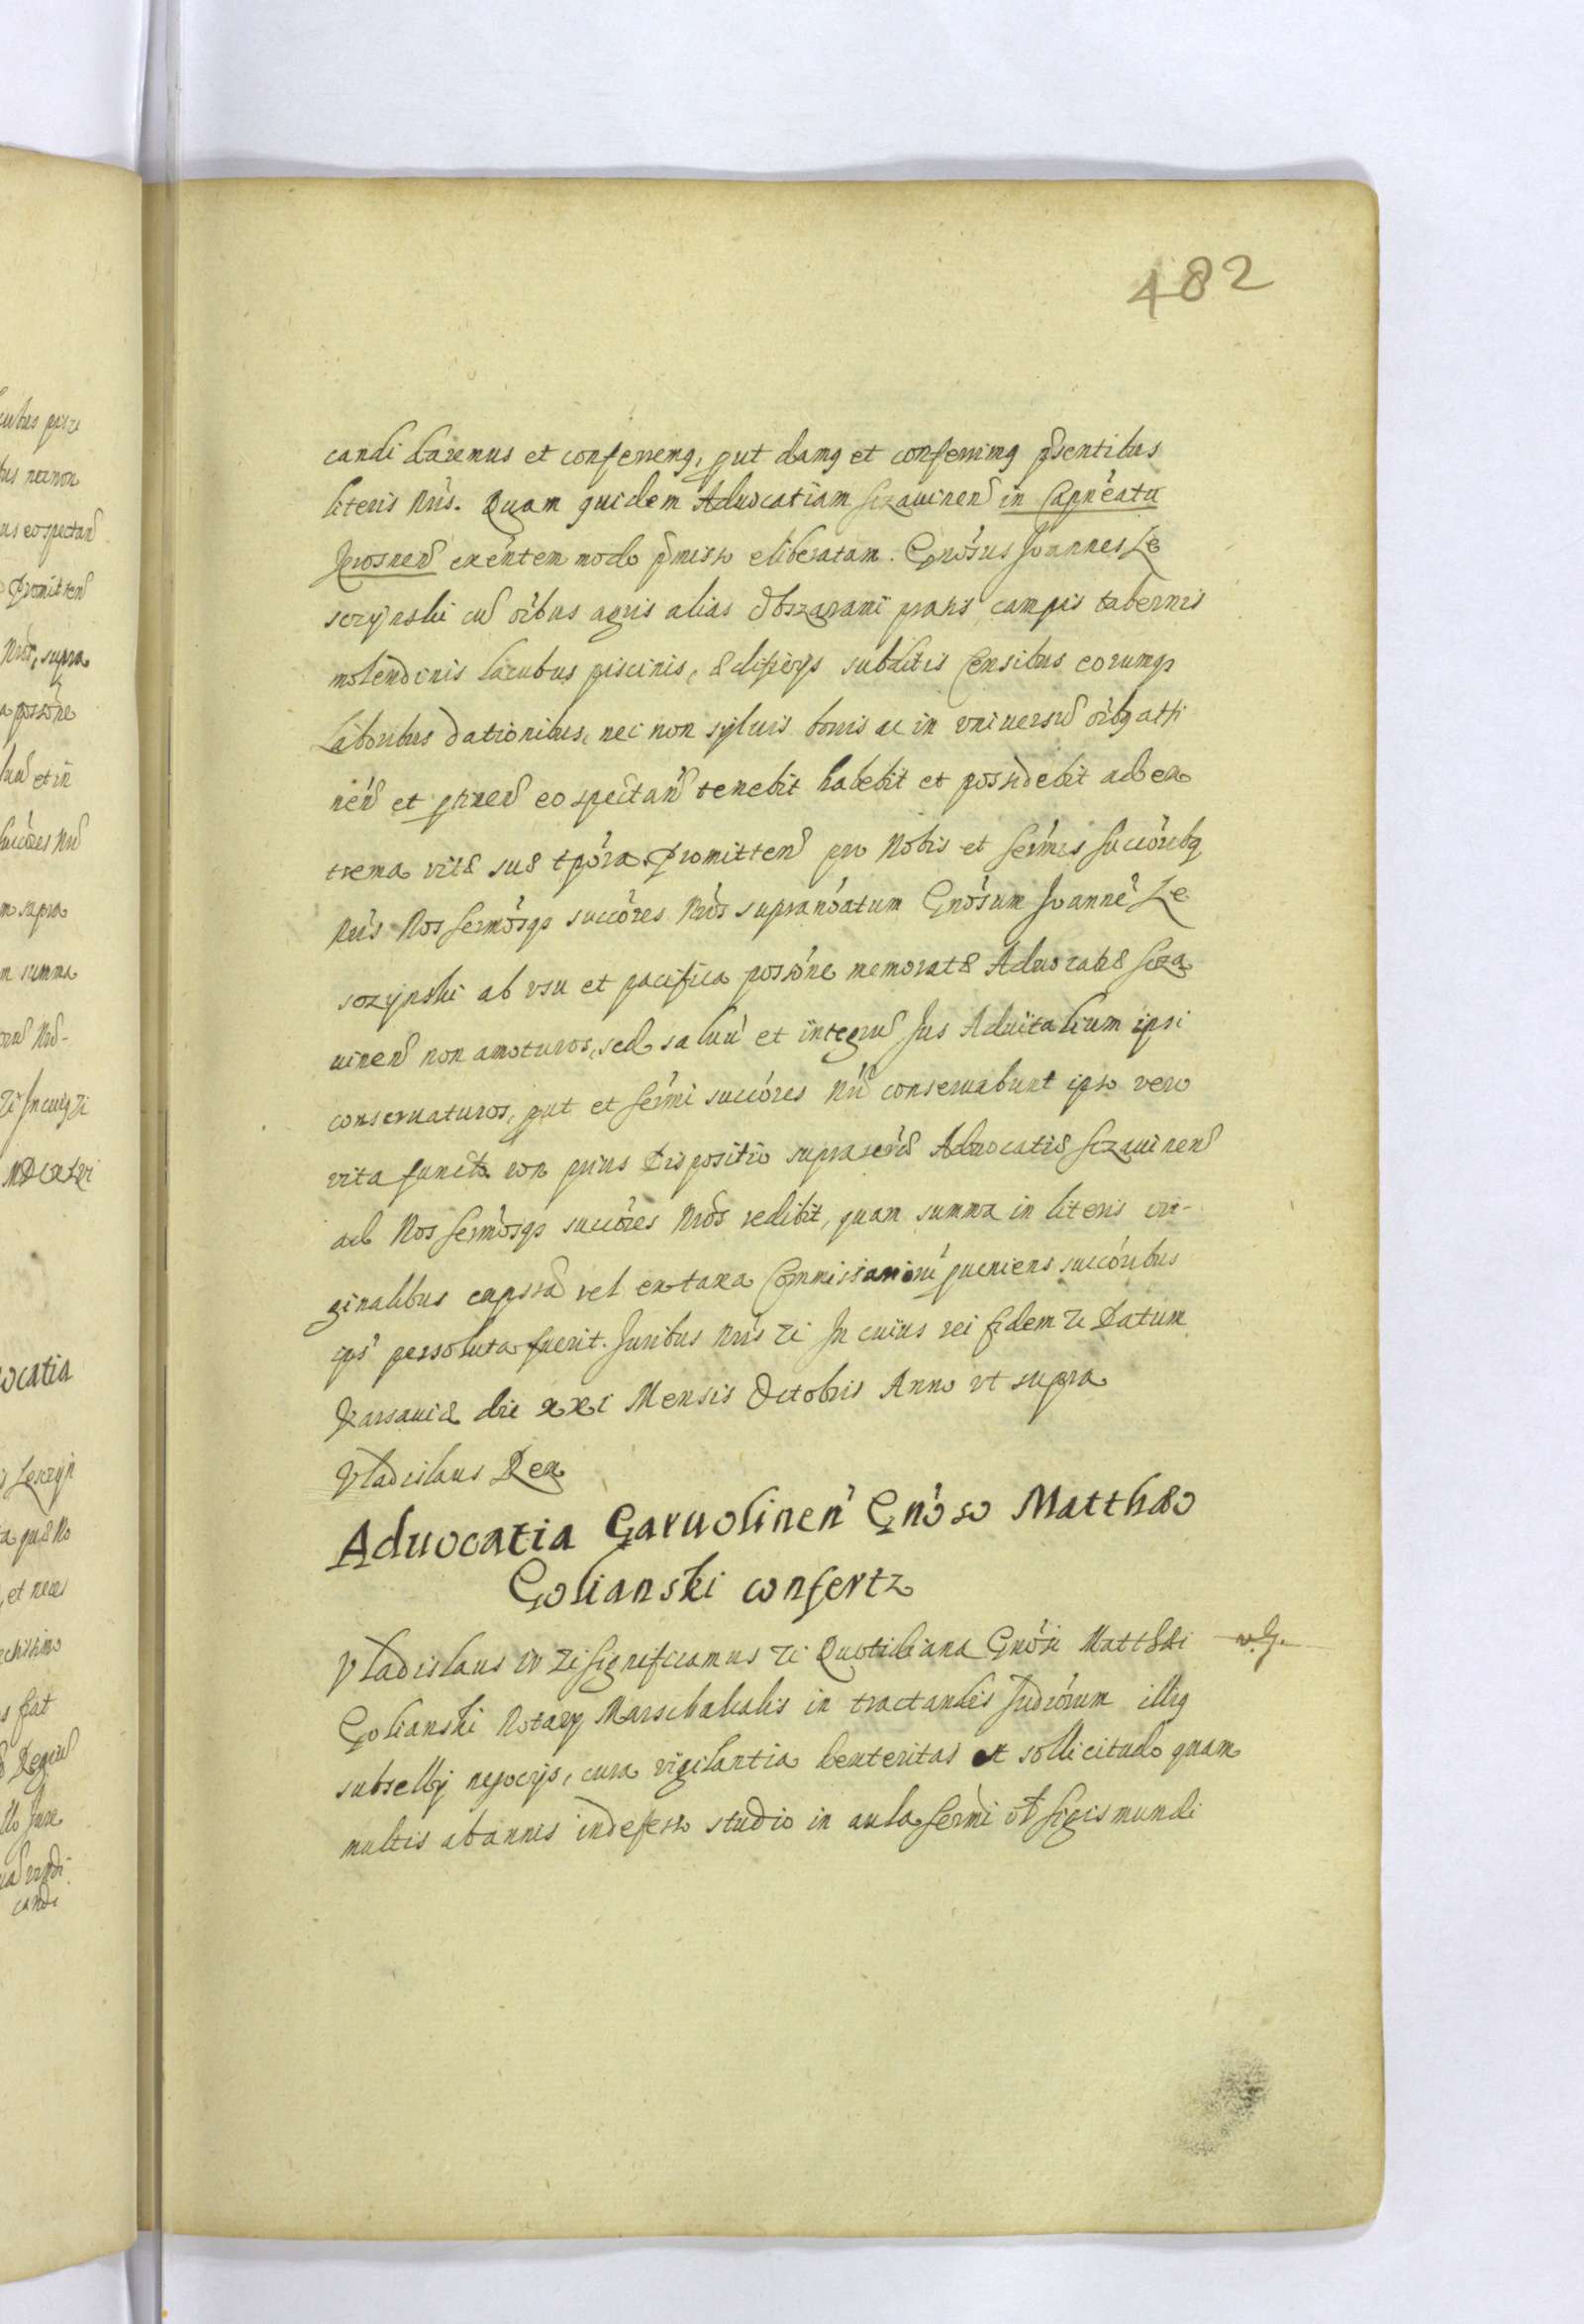 482
candi daremus et conferremq, put damq et conferrimq pñsentibus
literis Nris. Quam quidem Aduocatiam Sczauinen in Capneatu
Krosnen exentem modo pmisso eliberatam. Gnosus Joannes Le
sczynski cu oibus agris alias Obszarami pratis campis tabernis
molendinis lacubus piscinis, ædificijs subditis Censibus eorumqz
Laboribus dationibus, nec non syluis borris ac in vniuersu oibq atti
nen et ptinen eo spectan tenebit habebit et possidebit ad ex
trema vitæ suæ tpora. Promitten pro Nobis et Sermis Succoribq
Nris Nos Sermosqz succores Nros supranoatum Gnosum Joanne Le
sczynski ab vsu et pacifica possone memoratæ Aduocatiæ Scza
uinen non amoturos, sed saluu et integru Jus Aduitalium ipsi
conseruaturos, put et Sermi succores Nri conseruabunt ipso vero
vita functo non prius Dispositio suprascræ Aduocatiæ Sczauinen
ad Nos Sermosqz succores Nros redibit, quam summa in literis ori-
ginalibus expssa vel ex taxa Commissarioru pueniens succoribus
ips persoluta fuerit. Juribus Nris etc In cuius rei fidem etc Datum
Varsauiæ die xxi Mensis Octobris Anno vt supra
Vladislaus Rex
Aduocatia Garuolinen Gnoso Matthæo
Golianski confertz
Vladislaus IV etc Significamus etc Quotidiana Gnosi Matthæi
Golianski Notarij Marschalcalis in tractandis Judiciorum illiq
subsellij negocijs, cura vigilantia dexteritas et sollicitudo quam
multis ab annis indefesso studio in aula Sermi oł Sigismundi